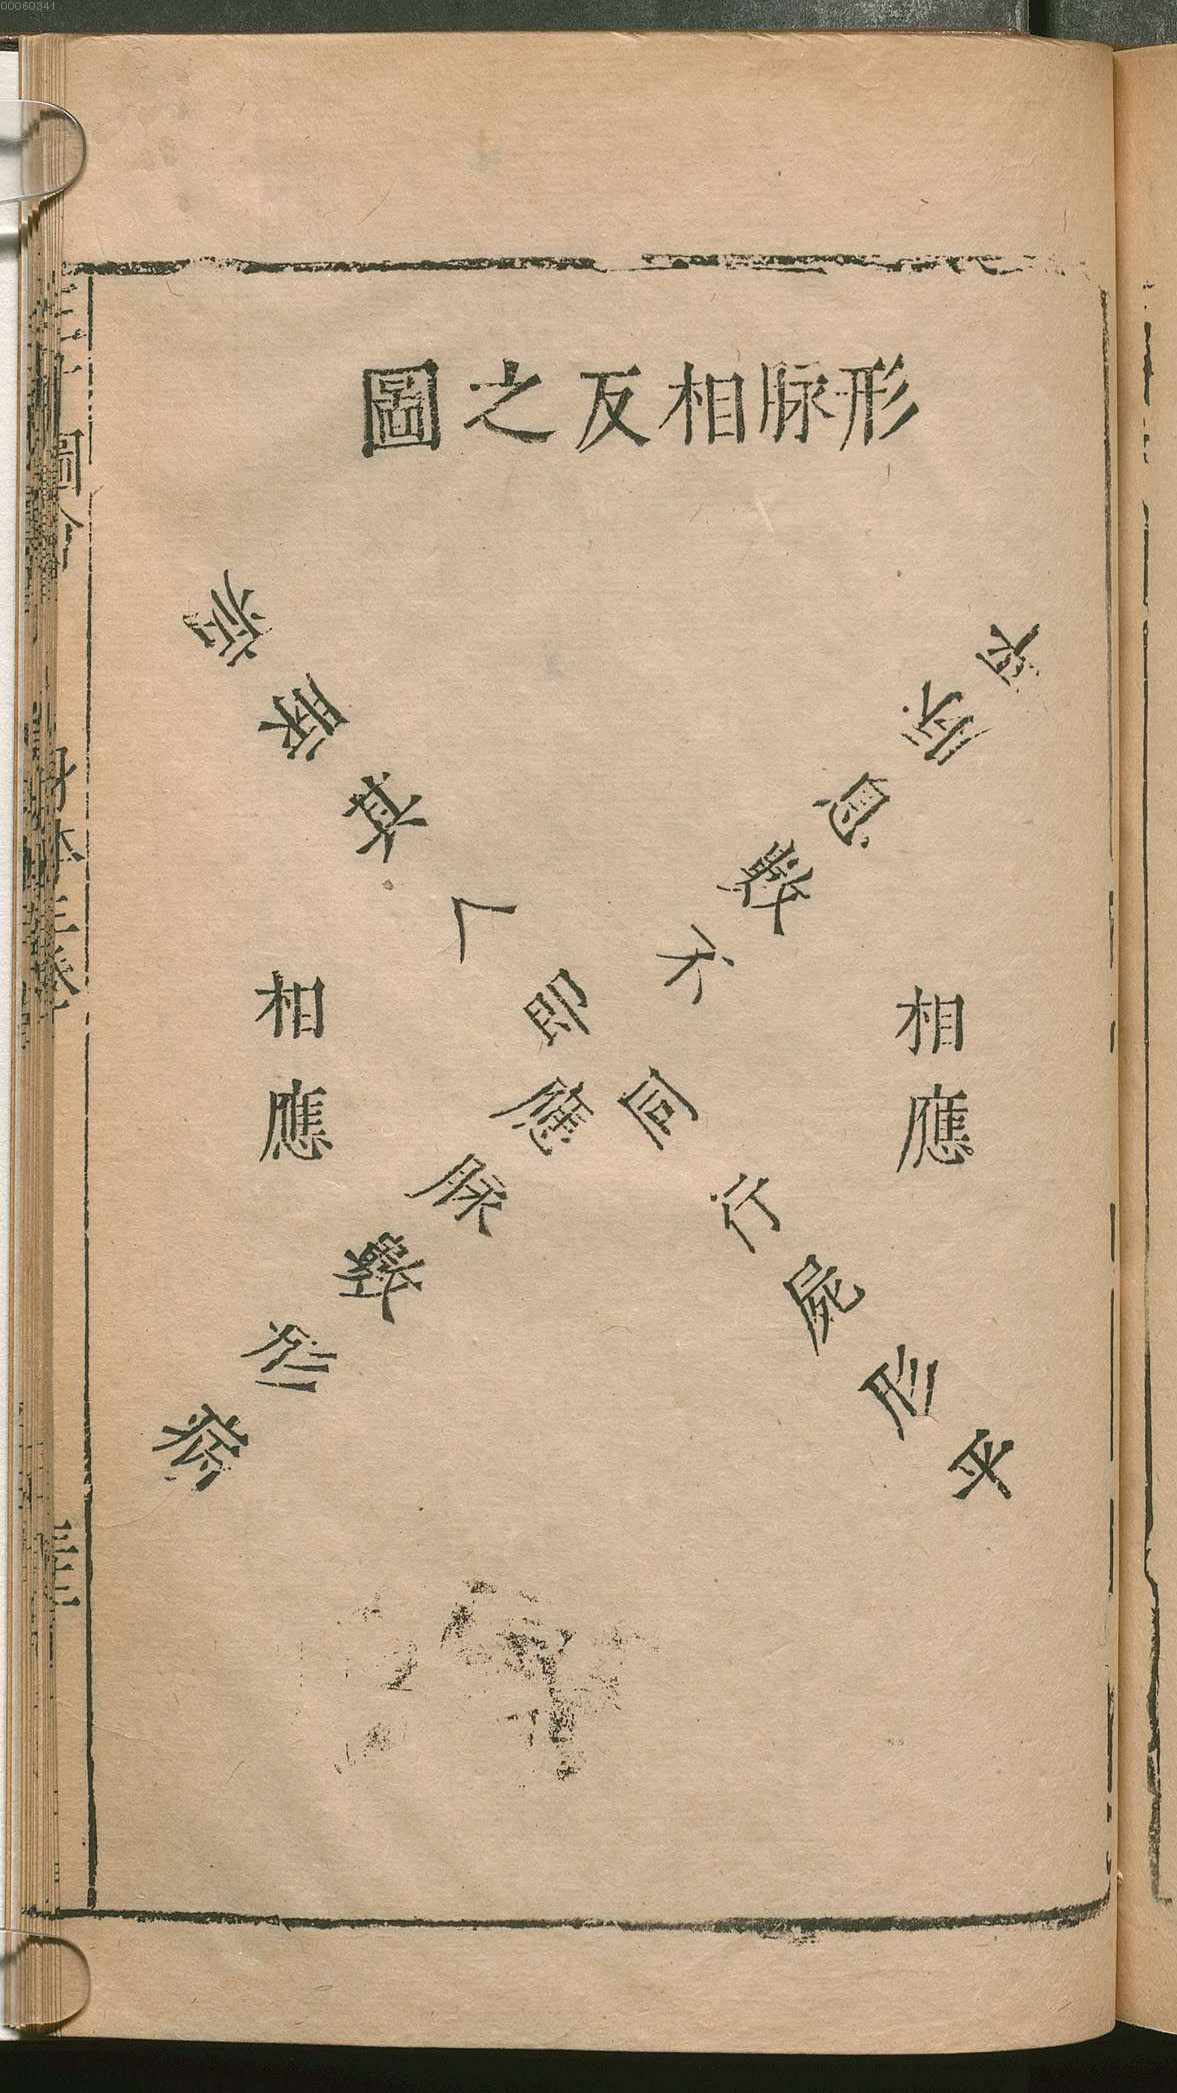 00060341
形脉相反之圖
病其人即同行屍形平
息數不應脉數形病
相應
相應
圖會